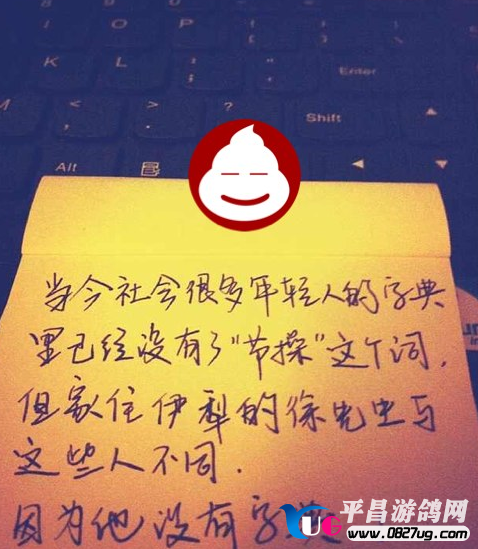 I
O
P
K
L
Enter
M
<
>
?
Shift
Alt
当今社会很多年轻人的字典
里已经没有了“节操”这个词,
但家住伊犁的徐先生与
这些人不同.
因为他没有字典
UG 平昌游鸽网
www.0827ug.com